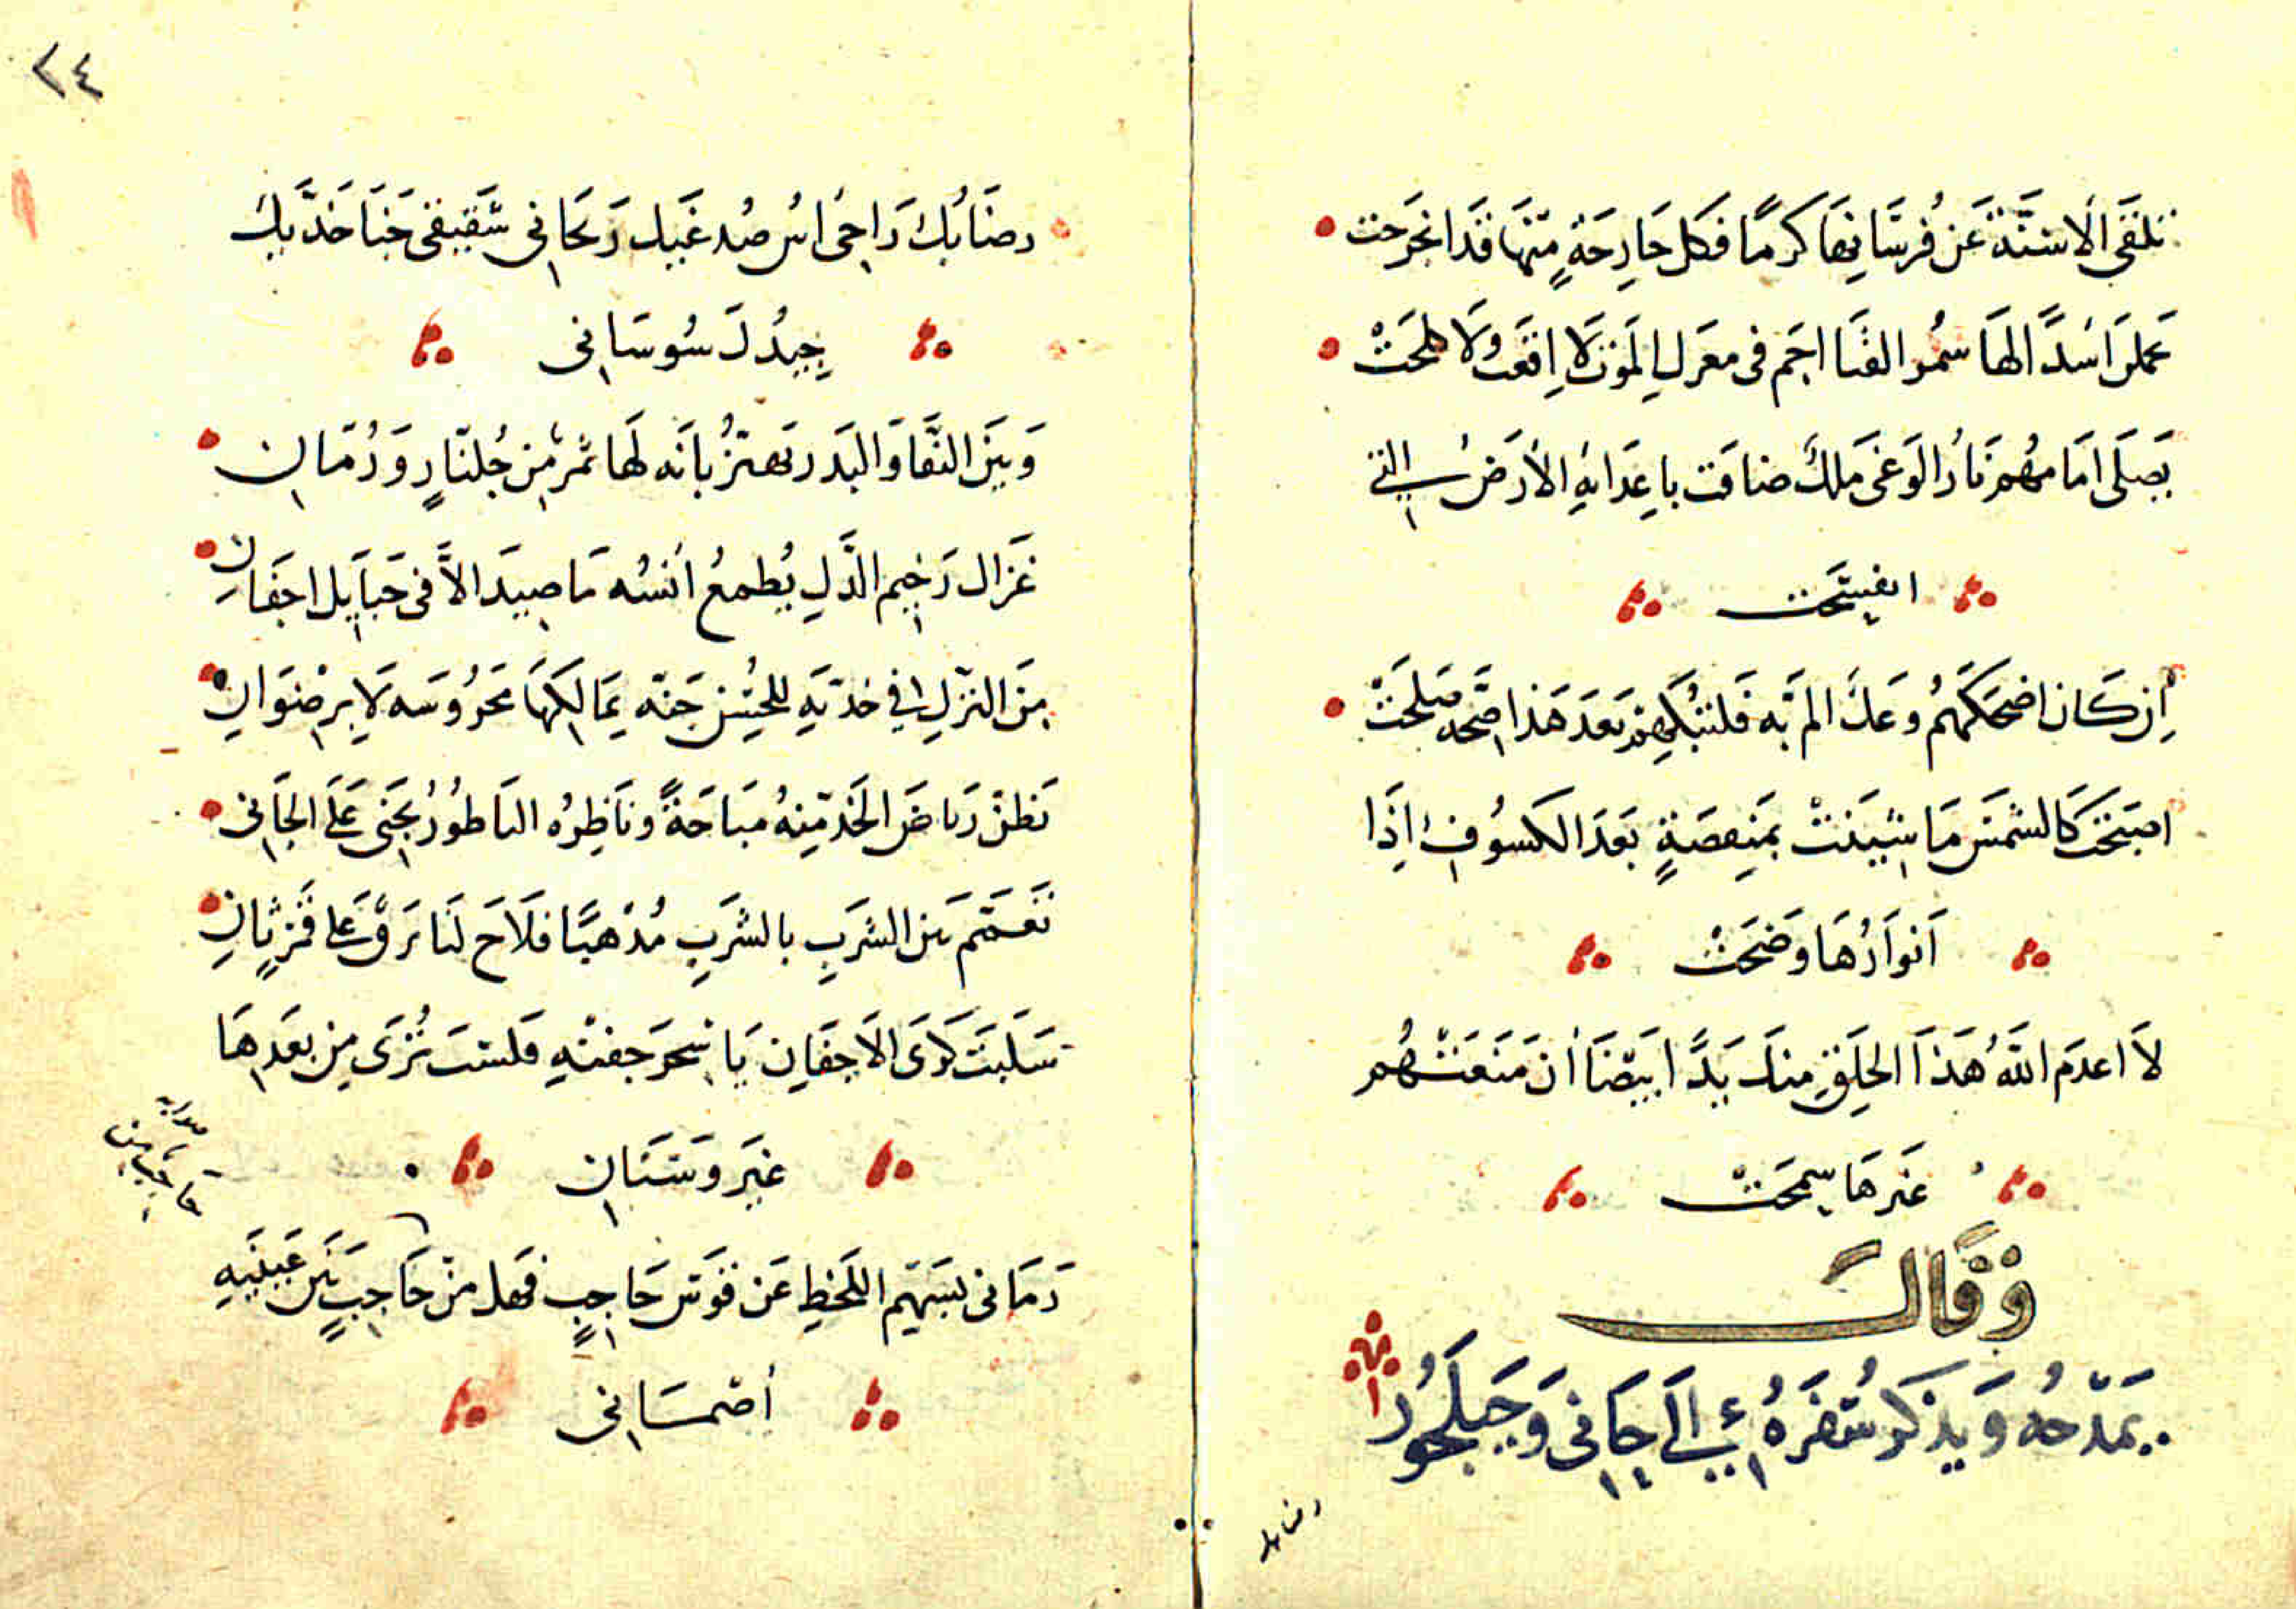 تلقى الاسنَّة عَن فُرسَانِهَا كرمًا فكل جَارِحَةٍ مِنْهَا قَد انجرَحت
يحملن اسْدًا لهَا سُمر القنَا اجَم فى معرك الموت لَا اِقعَت ولَا كلحَتْ
يَصلَى امَامهُم نَارُ الوَغَى مَلكٌ ضاقت باعِدَايِهِ الأرَضُ التى
انفسَحَت
اِن كَان اضحَكَهُم وَعك الم بَه فَلتبْكِهِم بَعدَ هَذا صَحّه صَلحَتْ
اصبَحَت كَالشمسَ مَا شِيَنتْ بمنِقصَةٍ بَعدَ الكسُوفِ اِذَا
اَنوَارُهَا وضَحَتْ
لاَ اعدَم اللهُ هَذَا الخَلقِ مِنك يَدًا ابيضَا ان مَنعَتهُم
غَيرهَا سمَحَتْ
وَقَالَ
يَمدَحُه وَيذكر سُفرَهُ الَى جَانى وَجَبلجُور
رضابك
٢٤
رضَابُكَ رَاحِى اسُ صُدغَيك رَيحَانِى شَقيقى جَنَا خَدَّيكَ
جِيدُكَ سُوسَانِى
وَبَينَ النَّقَا وَالبَدر تَهتزُّ بانَه لَهَا ثمرٌ مِن جُلنَارٍ وَرُمَانِ
غَزَال رَخِيم الدَّلِ يُطمعُ أنسُه مَا صِيدَ الاَّ فى حَبَايِل اجفَانِ
مِنَ التركِ فِي خدّيَهِ للحُسْن جَنّه يَمَالِكهَا مَحرُوسَه لَا بِرضوَانِ
تَظن رَياضَ الخَدّ مِنهُ مُبَاحَةً ونَاظِرُه النَاطُورُ يَجنِى عَلَى الجَانِى
تَعمّم بَين الشَربِ بالشَربِ مُذْهبًا فلَاحَ لنَا بَرقٌ عَلى قَمَرٍ ثَانِ
سَلَبتَ كرَى الاَجفَانِ يَا سِحرَ جفنهِ فلستَ تُرَى مِن بعَدِهَا
غيَر وسَنَانِ
رَمَانى بسَهمِ اللَحظِ عَن قوَسَ حَاجِبٍ فهَل مِنْ حَاجِبٍ بَين عَينَيهِ
أصْمَانِى